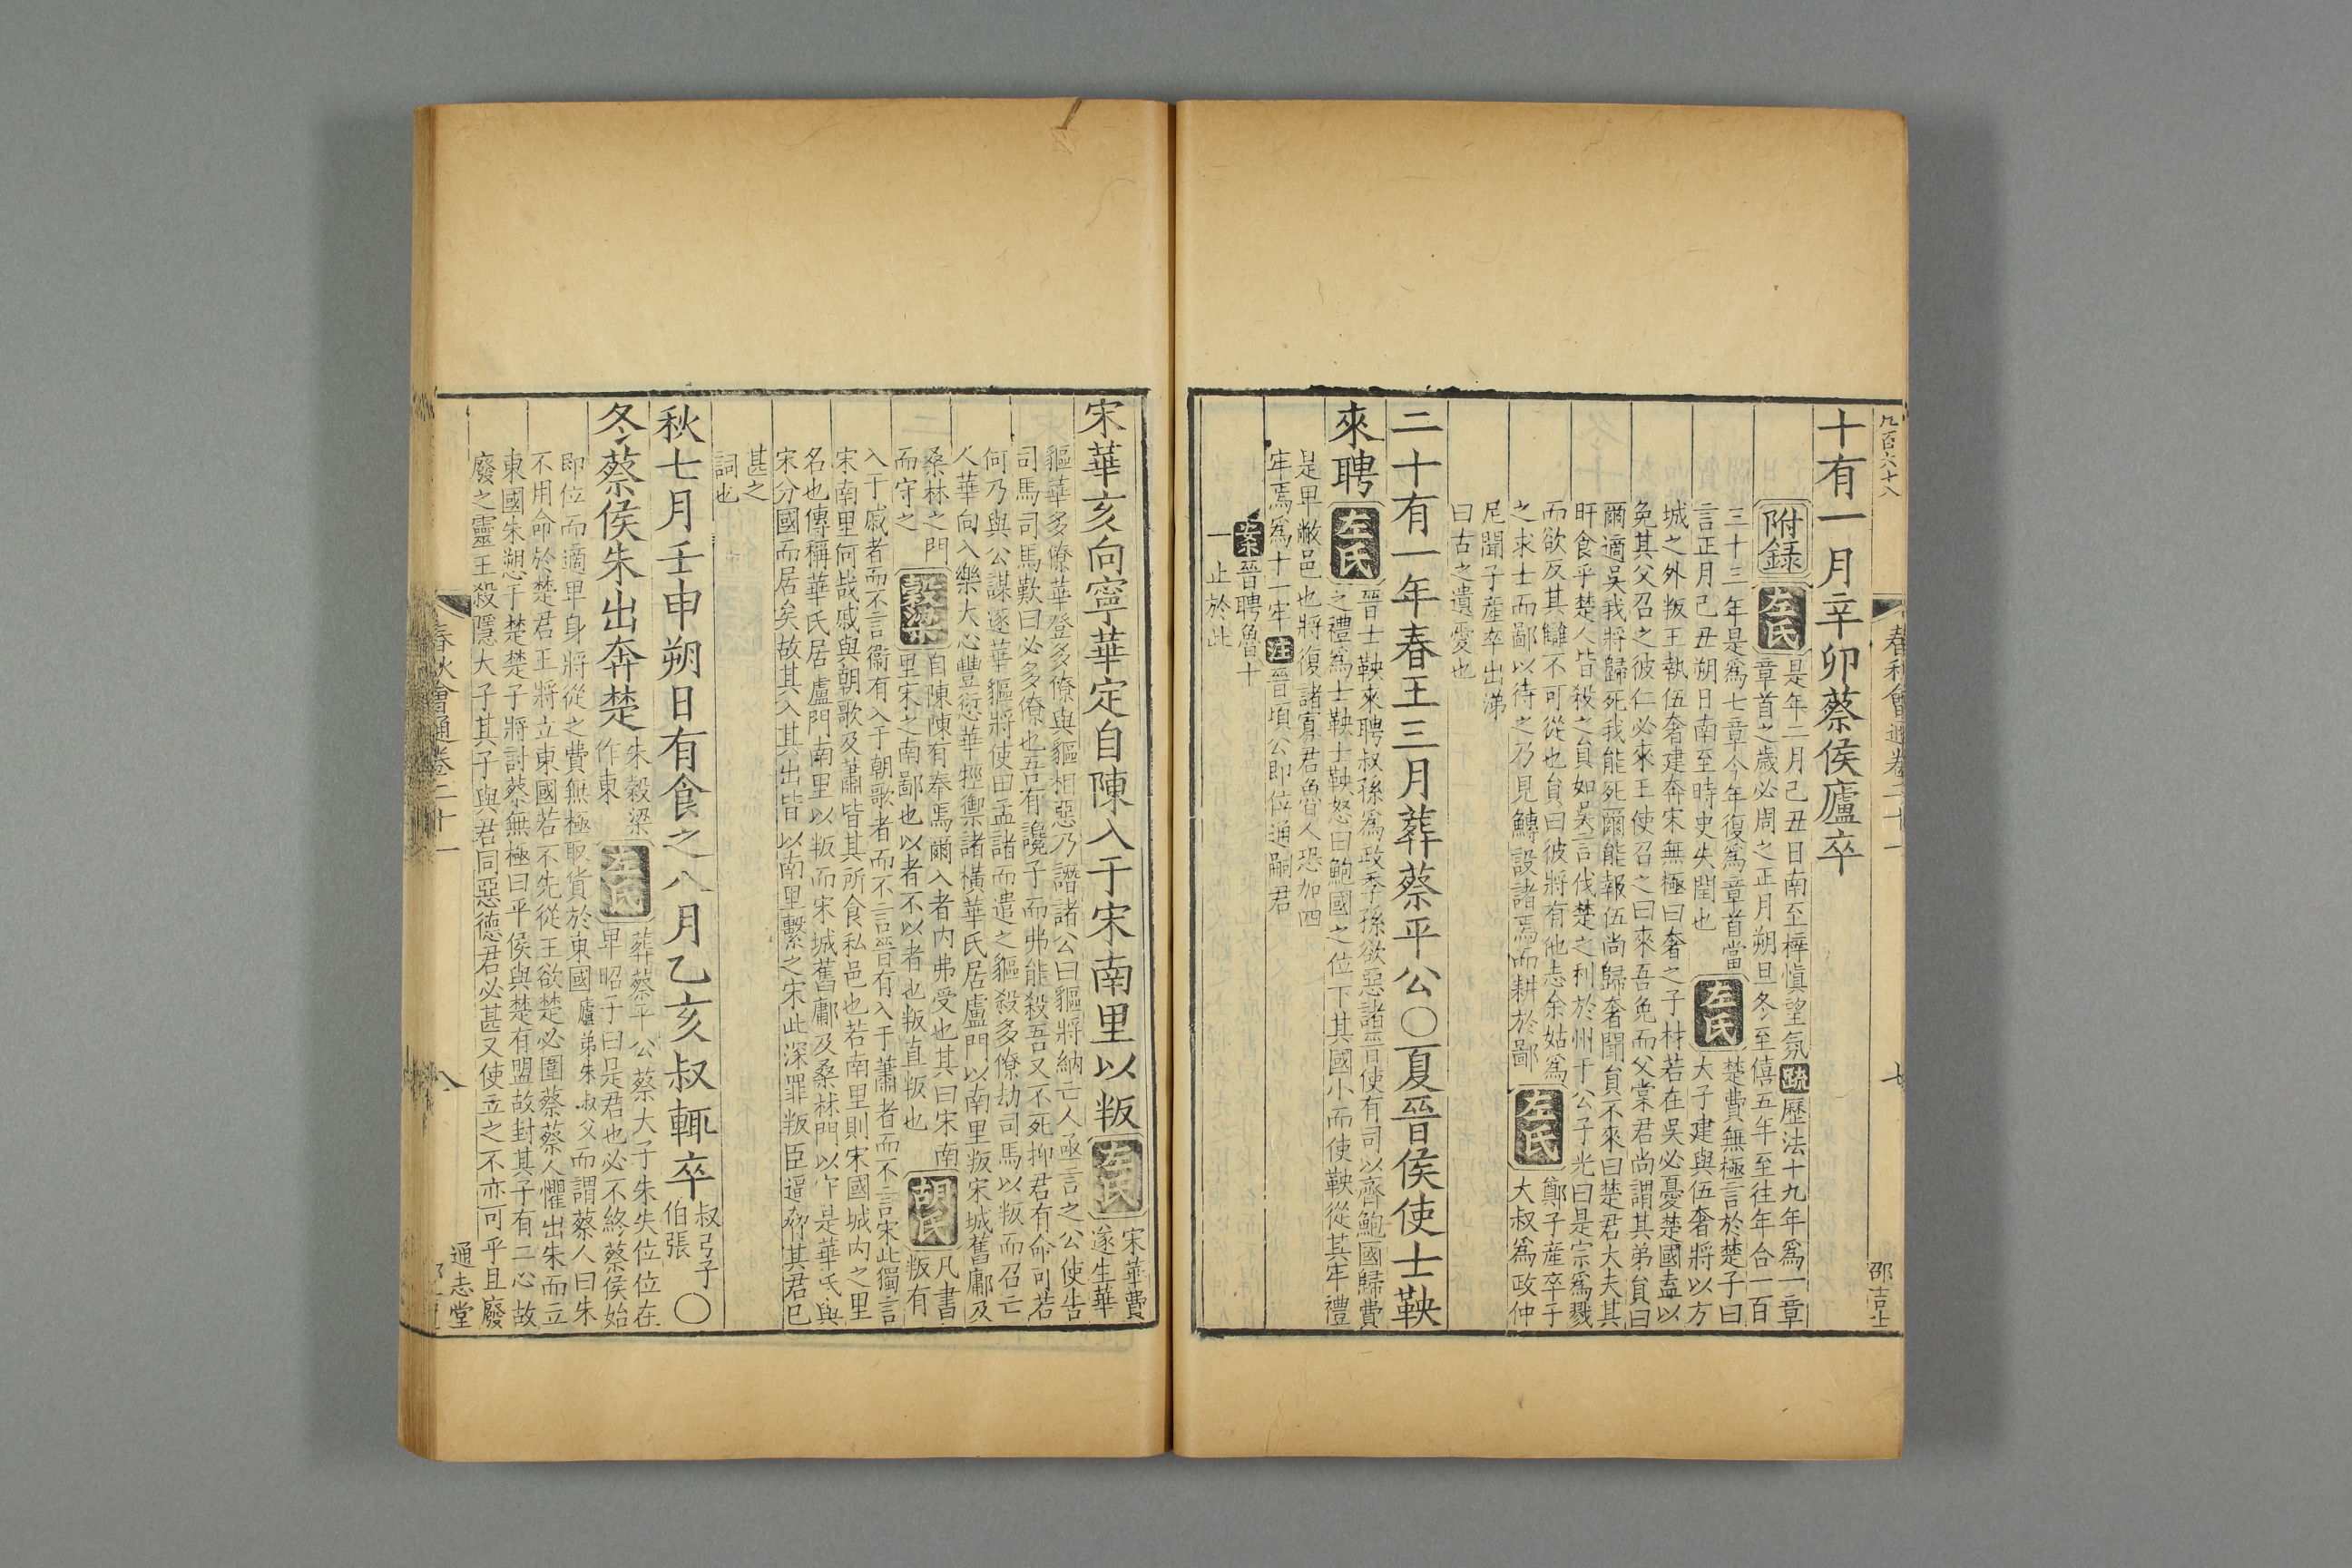 九百六十八
春秋會通卷二十一
七
邵吉士
十有一月辛卯蔡侯廬卒
附錄
左氏
是年二月己丑日南至梓慎望氛
疏
歷法十九年爲一章
章首之歲必周之正月朔旦冬至僖五年至往年合一百
三十三年是爲七章今年復爲章首當
言正月己丑朔日南至時史失閏也
左氏
楚費無極言於楚子曰
大子建與伍奢將以方
城之外叛王執伍奢建奔宋無極曰奢之子材若在吳必憂楚國盍以
免其父召之彼仁必來王使召之曰來吾免而父棠君尚謂其弟員曰
爾適吳我將歸死我能死爾能報伍尚歸奢聞員不來曰楚君大夫其
旰食乎楚人皆殺之員如吳言伐楚之利於州于公子光曰是宗爲戮
而欲反其讎不可從也員曰彼將有他志余姑爲
之求士而鄙以待之乃見鱄設諸焉而耕於鄙
左氏
鄭子產卒子
大叔爲政仲
尼聞子產卒出涕
曰古之遺愛也
二十有一年春王三月葬蔡平公○夏晉侯使士鞅
來聘
左氏
晉士鞅來聘叔孫爲政季孫欲惡諸晉使有司以齊鮑國歸費
之禮爲士鞅士鞅怒曰鮑國之位下其國小而使鞅從其牢禮
是卑敝邑也將復諸寡君魯人恐加四
牢焉爲十一牢
注
晉頃公即位通嗣君
案
晉聘魯十
一止於此
宋華亥向寧華定自陳入于宋南里以叛
左氏
宋華費
遂生華
貙華多僚華登多僚與貙相惡乃譖諸公曰貙將納亡人亟言之公使告
司馬司馬歎曰必多僚也吾有讒子而弗能殺吾又不死抑君有命可若
何乃與公謀逐華貙將使田孟諸而遣之貙殺多僚劫司馬以叛而召亡
人華向入樂大心豐愆華牼禦諸橫華氏居盧門以南里叛宋城舊鄘及
桑林之門
而守之
穀梁
自陳陳有奉焉爾入者内弗受也其曰宋南
里宋之南鄙也以者不以者也叛直叛也
胡氏
凡書
叛有
入于戚者而不言衞有入于朝歌者而不言晉有入于蕭者而不言宋此獨言
宋南里何哉戚與朝歌及蕭皆其所食私邑也若南里則宋國城内之里
名也傳稱華氏居盧門南里以叛而宋城舊鄘及桑林門以守是華氏與
宋分國而居矣故其入其出皆以南里繫之宋此深罪叛臣逼脅其君已
甚之
詞也
秋七月壬申朔日有食之八月乙亥叔輒卒
叔弓子
伯張
○
冬蔡侯朱出奔楚
朱穀梁
作東
左氏
葬蔡平公蔡大子朱失位位在
卑昭子曰是君也必不終蔡侯始
即位而適卑身將從之費無極取貨於東國廬弟朱叔父而謂蔡人曰朱
不用命於楚君王將立東國若不先從王欲楚必圍蔡蔡人懼出朱而立
東國朱愬于楚楚子將討蔡無極曰平侯與楚有盟故封其子有二心故
廢之靈王殺隱大子其子與君同惡德君必甚又使立之不亦可乎且廢
春秋會通卷二十一
八
通志堂